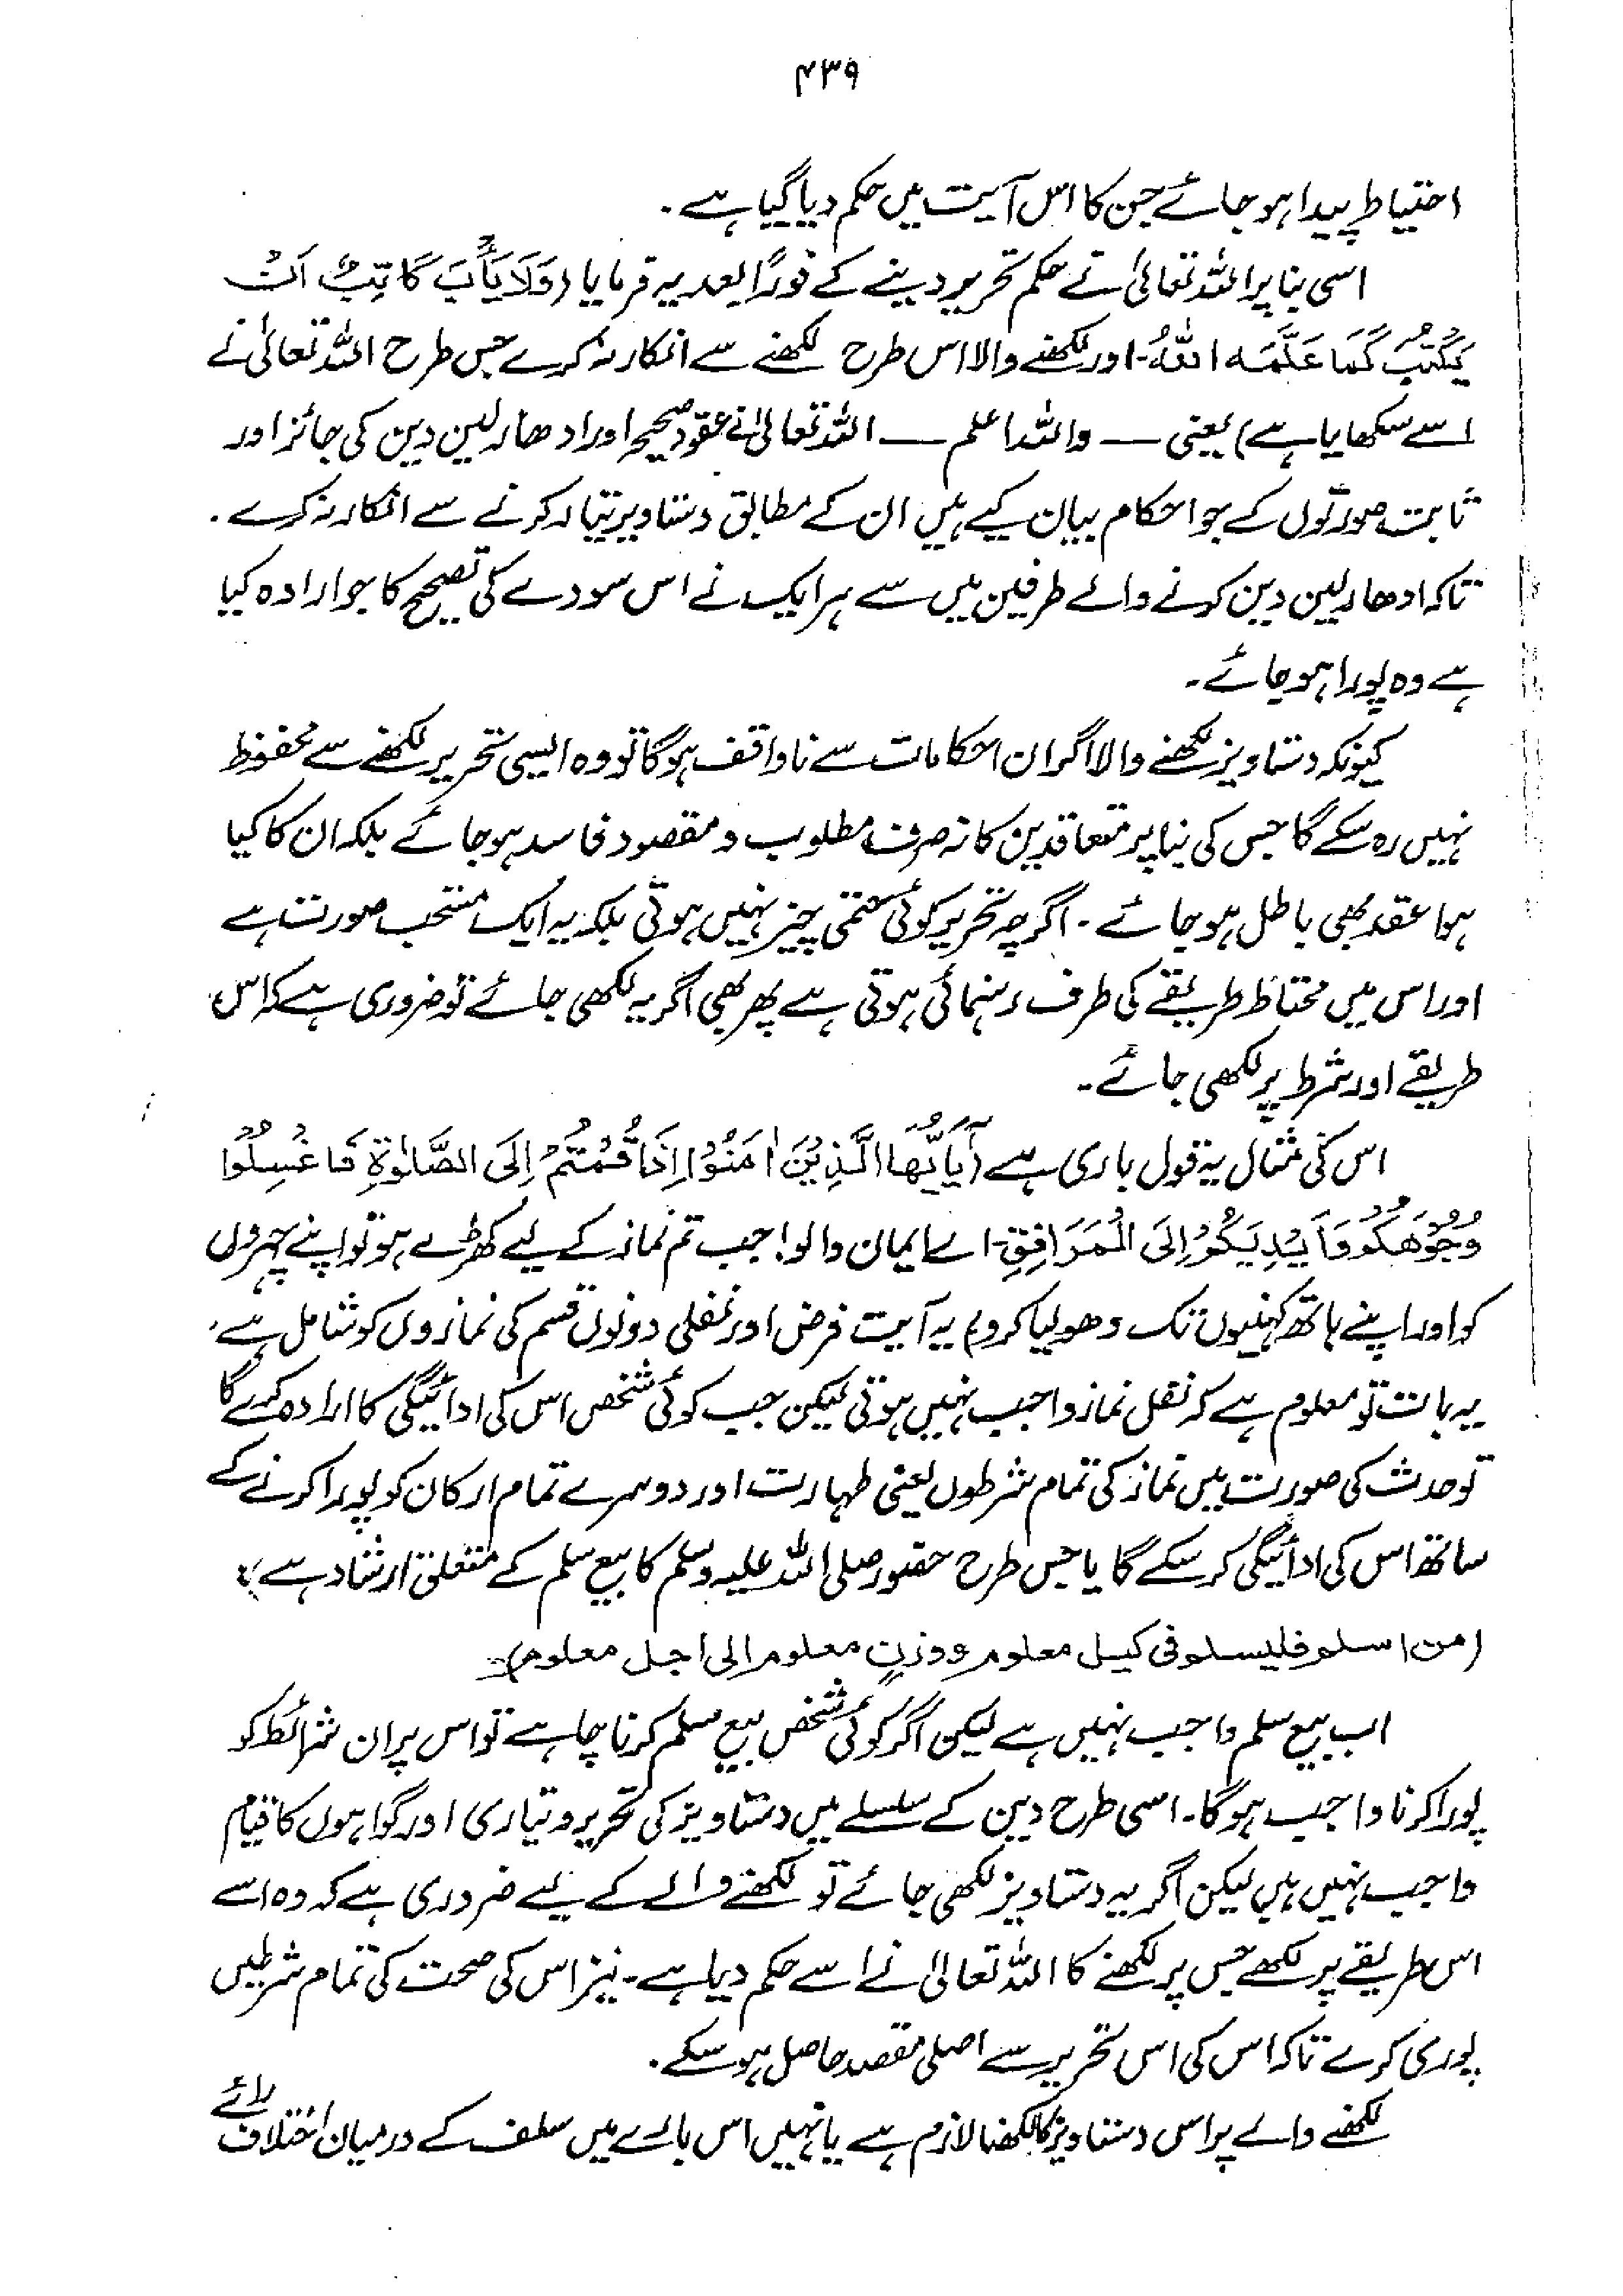 ۴۳۹
احتیاط پیدا ہو جائے جن کا اس آیت میں حکم دیا گیا ہے۔
اسی بنا پر اللہ تعالیٰ نے حکم تحریر دینے کے فوراً بعد یہ فرمایا (وَلَا یَأْبَ کَاتِبٌ اَنْ
یَّکْتُبَ کَمَا عَلَّمَہ اللّٰہُ۔ اور لکھنے والا اس طرح لکھنے سے انکار نہ کرے جس طرح اللہ تعالیٰ نے
اسے سکھایا ہے) یعنی — واللہ اعلم — اللہ تعالیٰ نے عقود صحیحہ اور ادھار لین دین کی جائز اور
ثابت صورتوں کے جو احکام بیان کیے ہیں ان کے مطابق دستاویز تیار کرنے سے انکار نہ کرے۔
تاکہ ادھار لین دین کرنے والے طرفین میں سے ہر ایک نے اس سودے کی تصحیح کا جو ارادہ کیا
ہے وہ پورا ہو جائے۔
کیونکہ دستاویز لکھنے والا اگر ان احکامات سے ناواقف ہوگا تو وہ ایسی تحریر لکھنے سے محفوظ
نہیں رہ سکے گا جس کی بنا پر متعاقدین کا نہ صرف مطلوب و مقصود فاسد ہو جائے بلکہ ان کا کیا
ہوا عقد بھی باطل ہو جائے۔ اگرچہ تحریر کوئی حتمی چیز نہیں ہوتی بلکہ یہ ایک مستحب صورت ہے
اور اس میں محتاط طریقے کی طرف رہنمائی ہوتی ہے پھر بھی اگر یہ لکھی جائے تو ضروری ہے کہ اس
طریقے اور شرط پر لکھی جائے۔
اس کی مثال یہ قول باری ہے (یٰٓاَیُّھَا الَّذِیْنَ اٰمَنُوْا اِذَا قُمْتُمْ اِلَی الصَّلٰوۃِ فَاغْسِلُوْا
وُجُوْھَکُمْ وَاَیْدِیَکُمْ اِلَی الْمَرَافِقِ۔ اے ایمان والو! جب تم نماز کے لیے کھڑے ہو تو اپنے چہروں
کو اور اپنے ہاتھ کہنیوں تک دھو لیا کرو) یہ آیت فرض اور نفلی دونوں قسم کی نمازوں کو شامل ہے،
یہ بات تو معلوم ہے کہ نفل نماز واجب نہیں ہوتی لیکن جب کوئی شخص اس کی ادائیگی کا ارادہ کرے گا
تو حدث کی صورت میں نماز کی تمام شرطوں یعنی طہارت اور دوسرے تمام ارکان کو پورا کرنے کے
ساتھ اس کی ادائیگی کر سکے گا یا جس طرح حضور صلی اللہ علیہ وسلم کا بیع سلم کے متعلق ارشاد ہے:
(من اسلم فلیسلم فی کیل معلوم ووزنٍ معلوم الی اجل معلوم)
اب بیع سلم واجب نہیں ہے لیکن اگر کوئی شخص بیع سلم کرنا چاہے تو اس پر ان شرائط کو
پورا کرنا واجب ہوگا۔ اسی طرح دین کے سلسلے میں دستاویز کی تحریر و تیاری اور گواہوں کا قیام
واجب نہیں ہیں لیکن اگر یہ دستاویز لکھی جائے تو لکھنے والے کے لیے ضروری ہے کہ وہ اسے
اس طریقے پر لکھے جس پر لکھنے کا اللہ تعالیٰ نے اسے حکم دیا ہے۔ نیز اس کی صحت کی تمام شرطیں
پوری کرے تاکہ اس کی اس تحریر سے اصلی مقصد حاصل ہو سکے۔
لکھنے والے پر اس دستاویز کا لکھنا لازم ہے یا نہیں اس بارے میں سلف کے درمیان اختلاف رائے